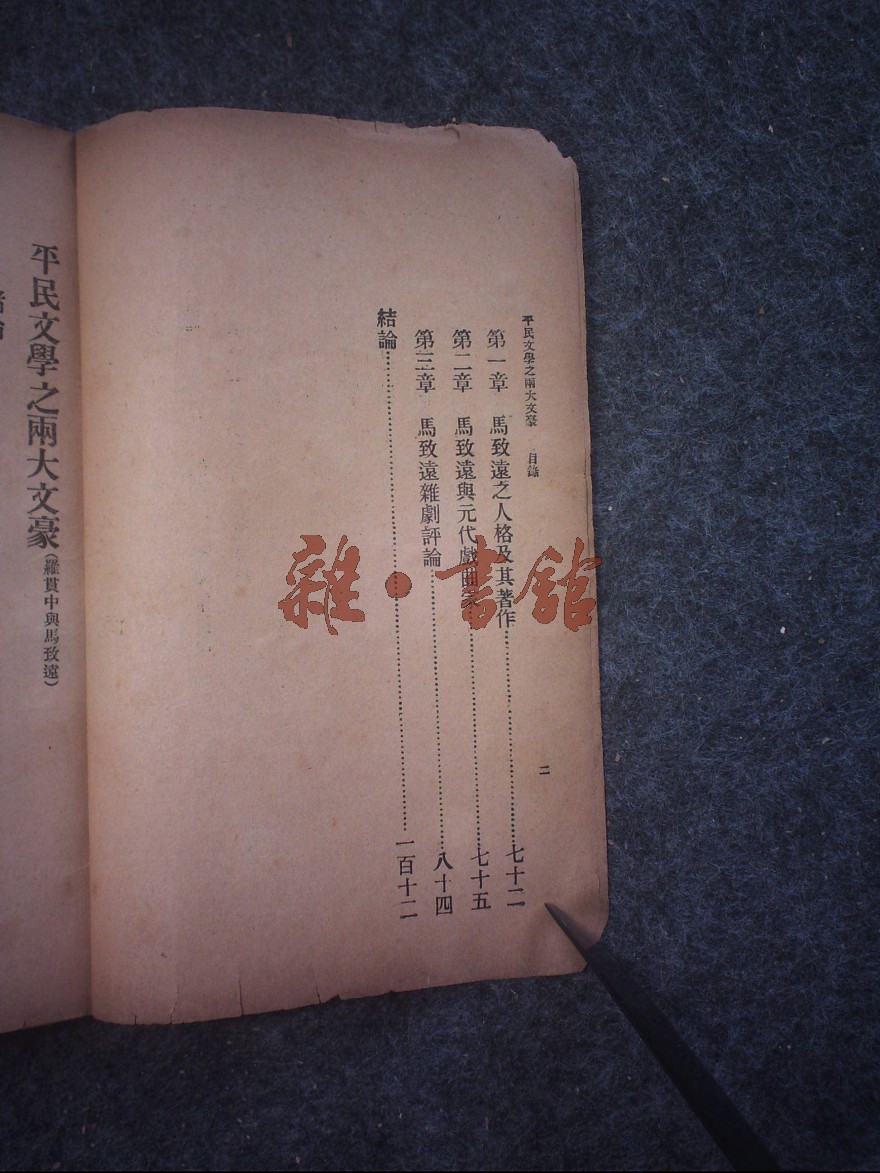 平民文學之兩大文豪 目錄 二
第一章 馬致遠之人格及其著作……七十二
第二章 馬致遠與元代戲曲家……七十五
第三章 馬致遠雜劇評論……八十四
結論……一百十二
平民文學之兩大文豪(羅貫中與馬致遠)
雜·書館